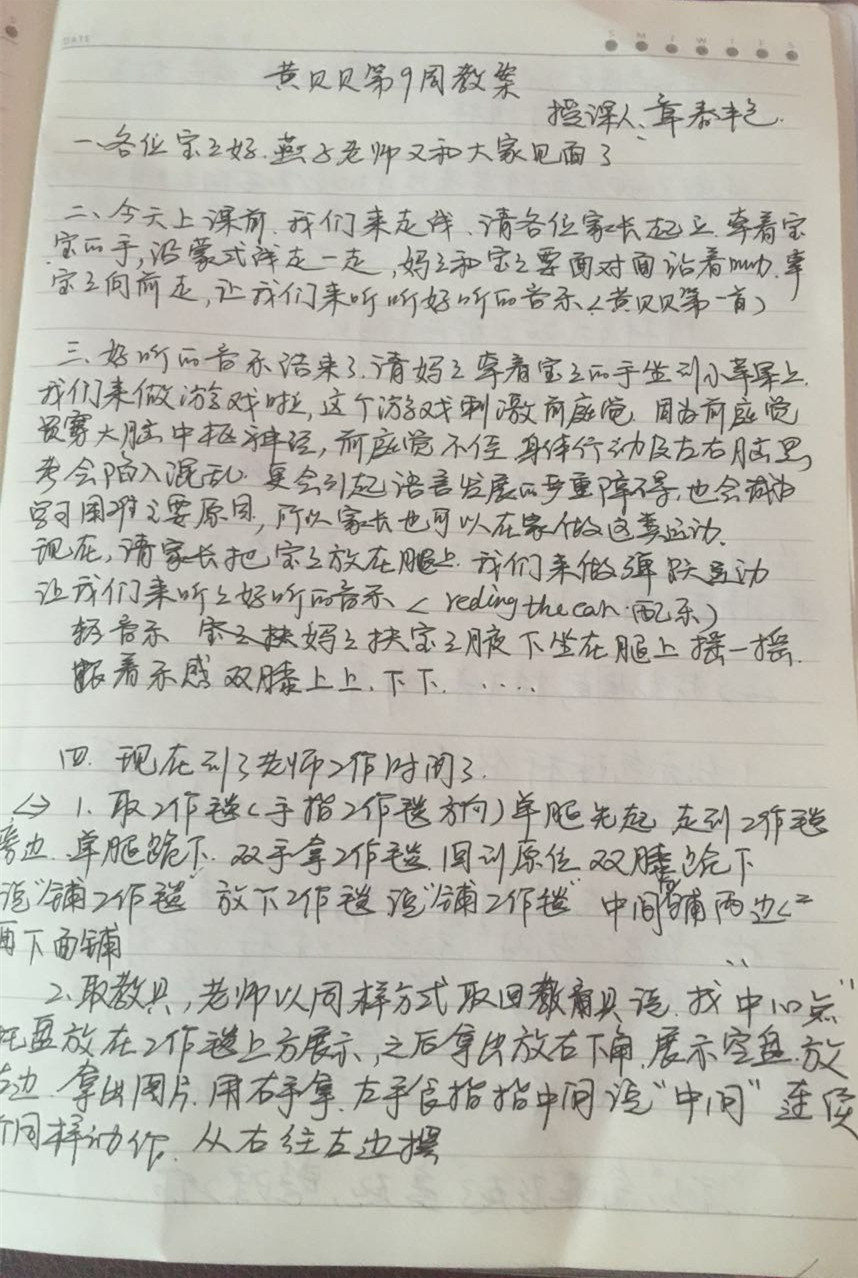 DATE
S M T W T F S
黄贝贝第9周教案
授课人:章春艳
一、各位宝宝好.燕子老师又和大家见面了
二、今天上课前.我们来走线、请各位家长起立.牵着宝
宝的手,沿蒙式线走一走,妈妈和宝宝要面对面站着 牵
宝宝向前走,让我们来听听好听的音乐<黄贝贝第一首>
三、好听的音乐结束了.请妈妈牵着宝宝的手坐到小苹果上.
我们来做游戏啦,这个游戏刺激前庭觉.因为前庭觉
贯穿大脑中枢神经,前庭觉不佳 身体行动及左右脑思
考会陷入混乱.更会引起语言发展的严重障碍,也会成为
学习困难主要原因,所以家长也可以在家做这类运动.
现在,请家长把宝宝放在腿上.我们来做弹跃运动
让我们来听听好听的音乐<reding the can.配乐>
音乐 妈妈扶宝宝腋下坐在腿上摇一摇.
跟着乐感双膝上上.下下.....
四.现在到了老师工作时间了.
1.取工作毯(手指工作毯方向)单腿先起 走到工作毯
旁边.单腿跪下.双手拿工作毯.回到原位 双膝跪下
说"铺工作毯" 放下工作毯 说"铺工作毯" 中间铺两边<=
再下面铺
2.取教具,老师以同样方式取回教具说.找"中心点"
托盘放在工作毯上方展示,之后拿出放右下角.展示空盘.放
左边.拿出图片.用右手拿.左手食指指中间说"中间" 连续
个同样动作.从右往左边摆